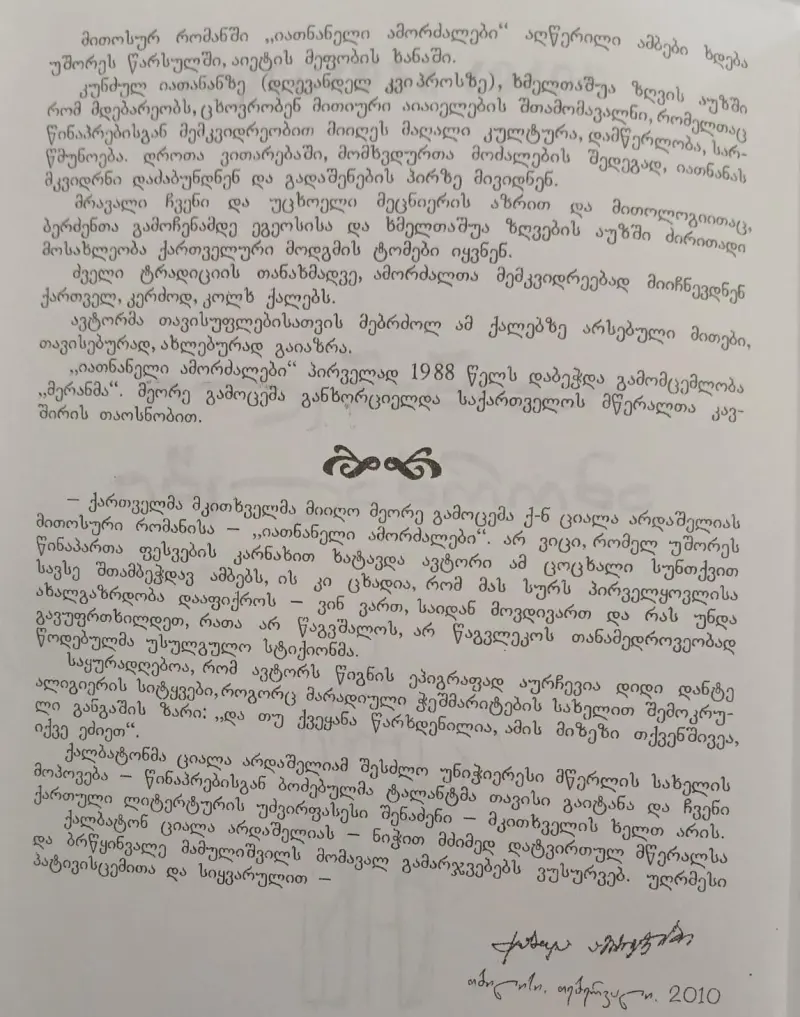 მითოსურ რომანში „იათნანელი ამორძალები“ აღწერილი ამბები ხდება
უშორეს წარსულში, აიეტის მეფობის ხანაში.
კუნძულ იათანანზე (დღევანდელ კვიპროსზე), ხმელთაშუა ზღვის აუზში
რომ მდებარეობს, ცხოვრობენ მითიური აიაიელების შთამომავალნი, რომელთაც
წინაპრებისგან მემკვიდრეობით მიიღეს მაღალი კულტურა, დამწერლობა, სარ-
წმუნოება. დროთა ვითარებაში, მომხვდურთა მოძალების შედეგად, იათნანას
მკვიდრნი დაძაბუნდნენ და გადაშენების პირზე მივიდნენ.
მრავალი ჩვენი და უცხოელი მეცნიერის აზრით და მითოლოგიითაც,
ბერძენთა გამოჩენამდე ეგეოსისა და ხმელთაშუა ზღვების აუზში ძირითადი
მოსახლეობა ქართველური მოდგმის ტომები იყვნენ.
ძველი ტრადიციის თანახმადვე, ამორძალთა მემკვიდრეებად მიიჩნევდნენ
ქართველ, კერძოდ, კოლხ ქალებს.
ავტორმა თავისუფლებისათვის მებრძოლ ამ ქალებზე არსებული მითები,
თავისებურად, ახლებურად გაიაზრა.
„იათნანელი ამორძალები“ პირველად 1988 წელს დაბეჭდა გამომცემლობა
„მერანმა“. მეორე გამოცემა განხორციელდა საქართველოს მწერალთა კავ-
შირის თაოსნობით.
– ქართველმა მკითხველმა მიიღო მეორე გამოცემა ქ-ნ ციალა არდაშელიას
მითოსური რომანისა – „იათნანელი ამორძალები“. არ ვიცი, რომელ უშორეს
წინაპართა ფესვების კარნახით ხატავდა ავტორი ამ ცოცხალი სუნთქვით
სავსე შთამბეჭდავ ამბებს, ის კი ცხადია, რომ მას სურს პირველყოვლისა
ახალგაზრდობა დააფიქროს – ვინ ვართ, საიდან მოვდივართ და რას უნდა
გავუფრთხილდეთ, რათა არ წაგვშალოს, არ წაგვლეკოს თანამედროვეობად
წოდებულმა უსულგულო სტიქიონმა.
საყურადღებოა, რომ ავტორს წიგნის ეპიგრაფად აურჩევია დიდი დანტე
ალიგიერის სიტყვები, როგორც მარადიული ჭეშმარიტების სახელით შემოკრუ-
ლი განგაშის ზარი: „და თუ ქვეყანა წარხდენილია, ამის მიზეზი თქვენშივეა,
იქვე ეძიეთ“.
ქალბატონმა ციალა არდაშელიამ შესძლო უნიჭიერესი მწერლის სახელის
მოპოვება – წინაპრებისგან ბოძებულმა ტალანტმა თავისი გაიტანა და ჩვენი
ქართული ლიტერტურის უძვირფასესი შენაძენი – მკითხველის ხელთ არის.
ქალბატონ ციალა არდაშელიას – ნიჭით მძიმედ დატვირთულ მწერალსა
და ბრწყინვალე მამულიშვილს მომავალ გამარჯვებებს ვუსურვებ. უღრმესი
პატივისცემითა და სიყვარულით –
თბილისი. თებერვალი. 2010